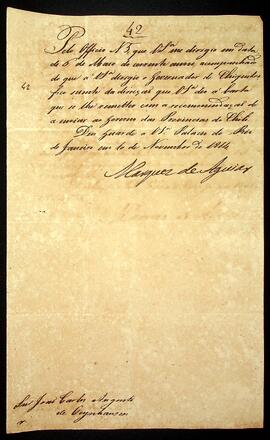 42
Pelo Officio N.3, que V.Sª me dirigio em data
de 5 de Maio do corrente anno acompanhado
do que a V.Sª dirigio o Governador de Chiquitos
42
fico sciente da direcçaõ que V.Sª deo á Carta
que se lhe remetteo com a recommendaçaõ de
a enviar ao Governo das Provincias do Chile.
Deos Guarde a V.Sª Palacio do Rio
de Janeiro em 10 de Novembro de 1814
Marquez de Aguiar
Snr. João Carlos Augusto
de Oeynhausen